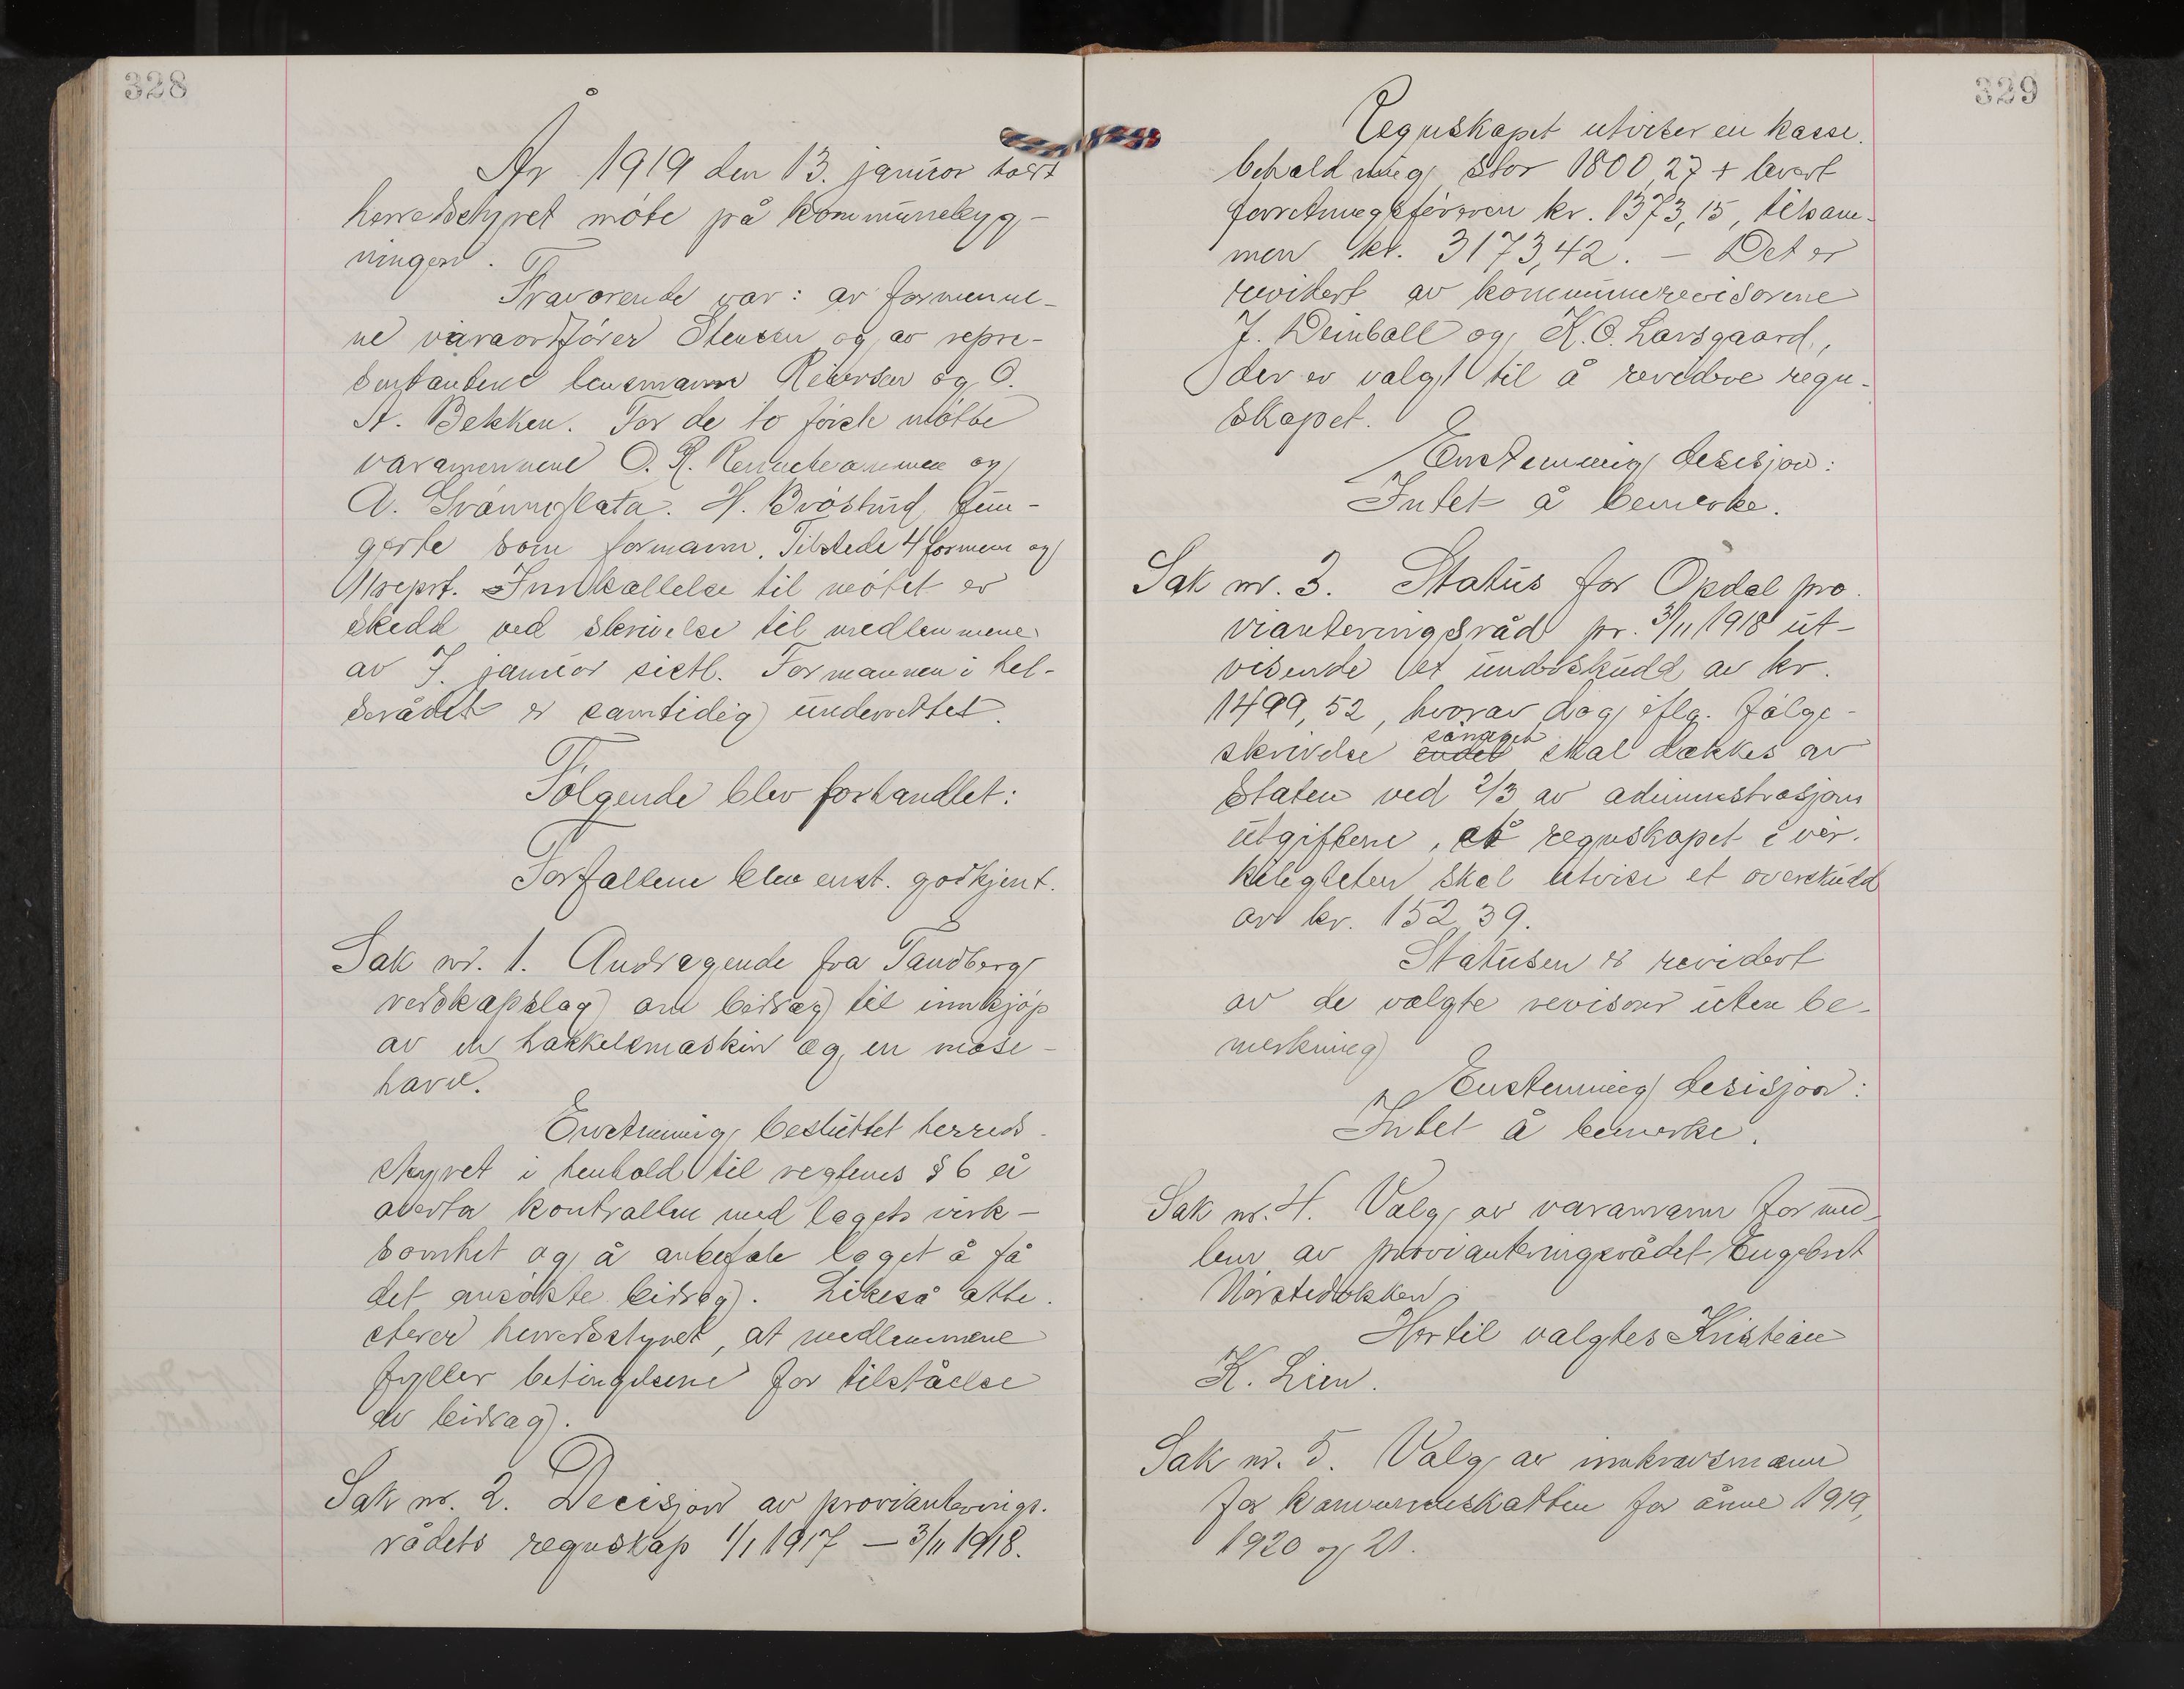 328
År 1919 den 13. januar holdt
herredsstyret möte på kommunebyg-
ningen.
Fraværende var: av formenne-
ne varaordförer Stensen og av repre-
sentantene lensmann Reiersen og O.
A. Bekken. For de to förste mötte
varamennene O. R. og
A. Grönneflata. H. Bröstrud fun-
gerte som formann. Tilstede 4 formenn og
11 reprt. Innkallelse til mötet er
skedd ved skrivelse til medlemmene
av 7. januar sistl. Formannen i hel-
serådet er samtidig underrettet.
Fölgende blev forhandlet:
Forfallene blev enst. godkjent.
Sak nr. 1. Andragende fra Tandberg
redskapslag om bidrag til innkjöp
av en hakkelsmaskin og en mose-
harv.
Enstemmig besluttet herreds-
styret i henhold til reglenes § 6 å
overta kontrollen med lagets virk-
somhet og å anbefale laget å få
det ansökte bidrag. Likeså atte-
sterer herredsstyret, at medlemmene
fyller betingelsene for tilståelse
av bidrag.
Sak nr. 2. Decisjon av provianterings-
rådets regnskap 1/1 1917 — 3/11 1918.
329
Regnskapet utviser en kasse-
beholdning stor 1800,27 + levert
forretningsföreren kr. 1373,15, tilsam-
men kr. 3173,42. — Det er
revidert av kommunerevisorene
J. Deinboll og K. O. Larsgaard,
der er valgt til å revidere regn-
skapet.
Enstemmig desisjon:
Intet å bemerke.
Sak nr. 3. Status for Opdal pro-
vianteringsråd pr. 3/11 1918 ut-
visende et underskudd av kr.
1499,52, hvorav dog iflg. fölge-
skrivelse såmeget skal dækkes av
Staten ved 2/3 av administrasjons
utgiftene, at regnskapet i vir-
keligheten skal utvise et overskudd
av kr. 152,39.
Statusen er revidert
av de valgte revisorer uten be-
merkning
Enstemmig desisjon:
Intet å bemerke.
Sak nr. 4. Valg av varamann for med-
lem av provianteringsrådet Engebret
Nörstedokken
Hertil valgtes Kristian
K. Lien.
Sak nr. 5. Valg av innkrævsmann
for kommuneskatten for årene 1919,
1920 og 21.